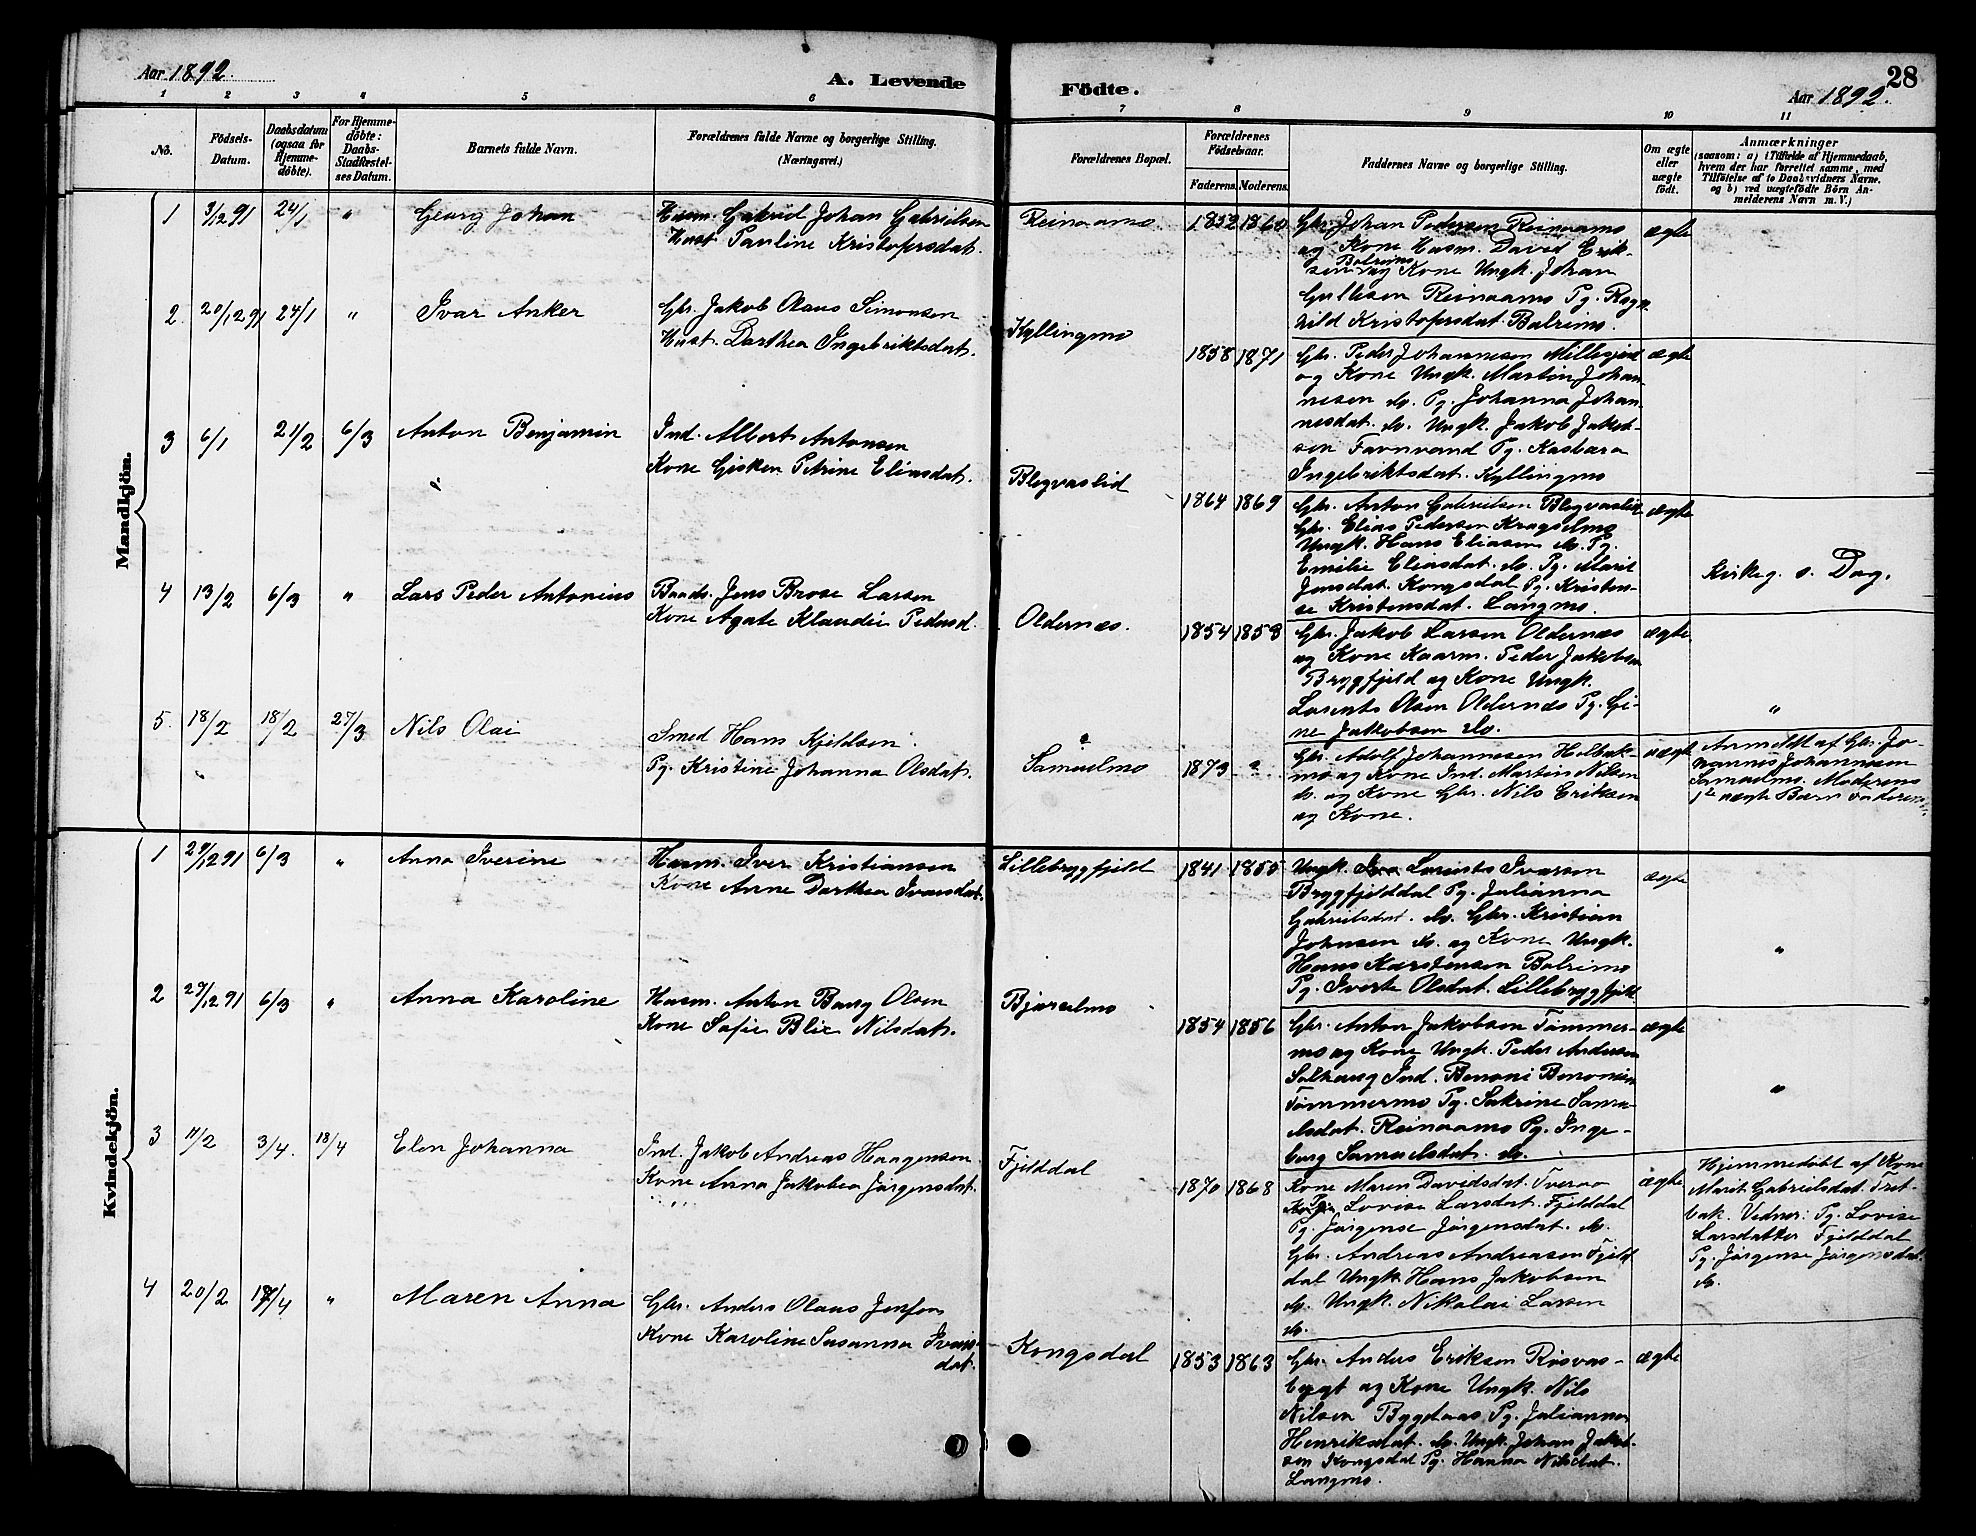 Aar 1892.
A. Levende Födte.
Aar 1892.
28
1 2 3 4 5 6 7 8 9 10 11
No.
Födsels-Datum.
Daabsdatum (ogsaa for Hjemme-döbte).
For Hjemme-döbte: Daabs-Stadfæstel-ses Datum.
Barnets fulde Navn.
Forældrenes fulde Navne og borgerlige Stilling. (Næringsvei.)
Forældrenes Bopæl.
Forældrenes Födselsaar.
Faderens. Moderens.
Faddernes Navne og borgerlige Stilling.
Om ægte eller uægte födt.
Anmærkninger
(saasom: a) i Tilfælde af Hjemmedaab,
hvem der har forrettet samme, med
Tilföielse af to Daabsvidners Navne,
og b) ved uægtefödte Börn An-
melderens Navn m. V.)
Mandkjön.
1 3/12 91 24/1 " Georg Johan
Husm. Gabriel Johan Gabrielsen
Hust. Pauline Kristofersdat.
Reinaamo. 1852 1860
Gbr. Johan Pedersen Reinaamo
og Kone Husm. David Erik-
sen Bolrimo og Kone Ungk. Johan
Gullesen Reinaamo Pg. Ragn
hild Kristofersdat. Bolrimo.
ægte
2 20/12 91 24/1 " Ivar Anker
Gbr. Jakob Olaus Simonsen
Hust. Dorthea Ingebriktsdat.
Kyllingmo
1858 1871
Gbr. Peder Johannesen Millesjord
og Kone Ungk. Martin Johan-
nesen do. Pg. Johanna Johan-
nesdat. do. Ungk. Jakob Jakob-
sen Favnvand Pg. Kasbara
Ingebriktsdat. Kyllingmo
ægte
3 6/1 21/2 6/3 Anton Benjamin
Ind. Albert Antonsen
Kone Gisken Petrine Eliasdat.
Blegvaslid
1864 1869
Gbr. Anton Gabrielsen Blegvaslid
Gbr. Elias Pedersen Kragselmo
Ungk. Hans Eliasen do. Pg.
Emilie Eliasdat. do. Pg. Marit
Jonsdat. Kongsdal Pg. Kristen-
se Kristensdat. Langmo.
ægte
Kirkeg. s. Dag.
4 13/2 6/3 " Lars Peder Antonius
Baads. Jens Brose Larsen
Kone Agate Klaudie Pedersd.
Oldernæs.
1854 1858
Gbr. Jakob Larsen Oldernæs
og Kone Kaarm. Peder Jakobsen
Brygfjeld og Kone Ungk.
Lorents Olsen Oldernæs Pg. Gi-
ne Jakobsen do.
ægte
"
5. 18/2 18/2 27/3 Nils Olai
Smed Hans Kjeldsen
Pg. Kristine Johanna Olsdat.
Samuelmo 1873 ?
Gbr. Adolf Johannesen Holbæk-
mo og Kone Ind. Martin Nilsen
do. og Kone Gbr. Nils Eriksen
og Kone.
uægte
Anmeldt af Gbr. Jo-
hannes Johannesen
Samuelmo. Moderens
1ste uægte Barn Faderens
Kvindekjön.
1 29/12 91 6/3 " Anna Iverine
Husm. Iver Kristiansen
Kone Anne Dorthea Ivarsdat.
Lillebrygfjeld 1841 1855
Ungk. Lorents Ivarsen
Brygfjelddal Pg. Julianna
Gabrielsdat. do. Gbr. Kristian
Johnsen do. og Kone Ungk.
Hans Karstensen Bolrimo
Pg. Iverte Olsdat. Lillebrygfjeld
ægte
"
2 27/12 91 6/3 " Anna Karoline
Husm. Anton Bang Olsen
Kone Sofie Blix Nilsdat.
Bjurselmo
1854 1856
Gbr. Anton Jakobsen Tömmer-
mo og Kone Ungk. Peder Andersen
Solhaug Ind. Benoni Benonisen
Tömmermo Pg. Sakrine Samu-
elsdat. Reinaamo Pg. Inge-
borg Samuelsdat. do.
ægte
"
3 11/2 3/4. 18/4 Elen Johanna
Ind. Jakob Andreas Haagensen
Kone Anna Jakobea Jörgensdat.
Fjelddal
1870 1868
Kone Maren Davidsdat. Tveraa
Pg. Lovise Larsdat. Fjelddal
Pg. Jörgense Jörgensdat. do.
Gbr. Andreas Andreasen Fjeld
dal Ungk. Hans Jakobsen
do. Ungk. Nikolai Larsen
do.
ægte
Hjemmedöbt af Kone
Marit Gabrielsdat. Tret-
bak. Vidner: Pg. Lovise
Larsdatter Fjelddal
Pg. Jörgense Jörgensdat.
do.
4 20/2 17/4 " Maren Anna
Gbr. Anders Olaus Jensen
Kone Karoline Susanna Ivars-
dat.
Kongsdal 1853 1863
Gbr. Anders Eriksen Rösvas-
bugt og Kone Ungk. Nils
Nilsen Bygdaas Pg. Julianna
Henriksdat. do. Ungk. Johan Jakob-
sen Kongsdal Pg. Hanna Nilsdat.
Langmo.
ægte